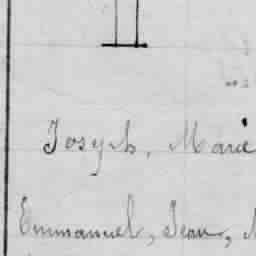 Joseph, Marie
Emmanuel, Jean,